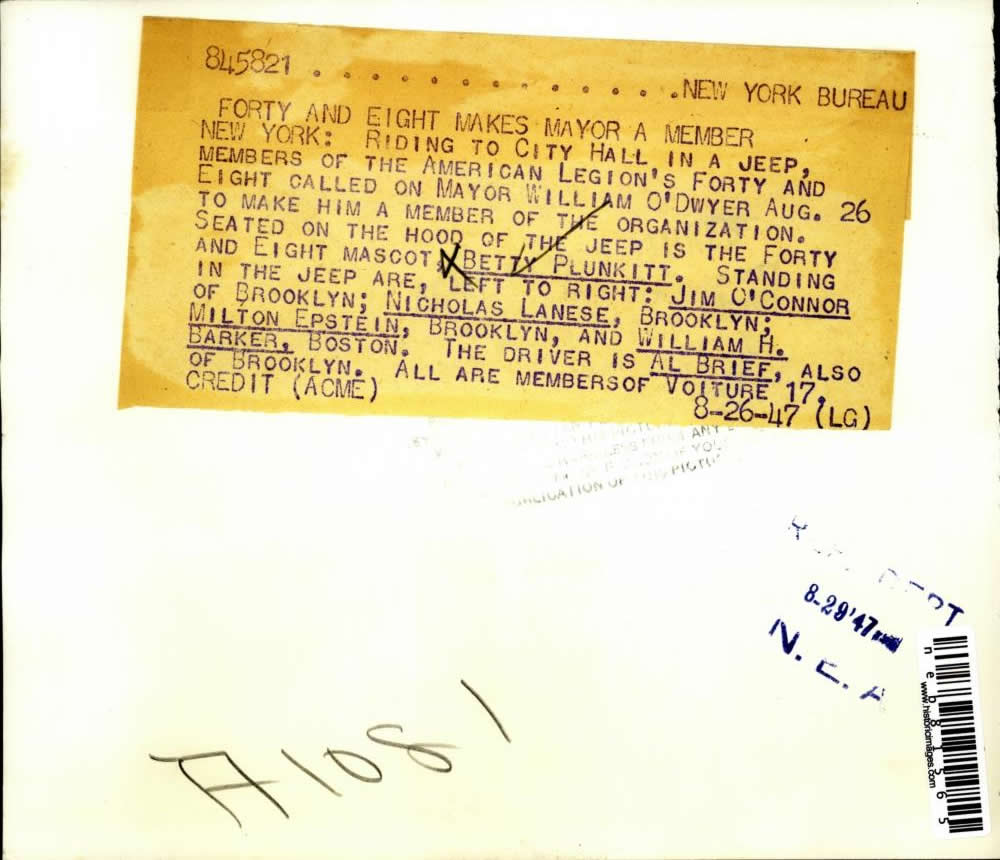 845821 . . . . . . . . . . . . . .NEW YORK BUREAU
FORTY AND EIGHT MAKES MAYOR A MEMBER
NEW YORK: RIDING TO CITY HALL IN A JEEP,
MEMBERS OF THE AMERICAN LEGION'S FORTY AND
EIGHT CALLED ON MAYOR WILLIAM O'DWYER AUG. 26
TO MAKE HIM A MEMBER OF THE ORGANIZATION.
SEATED ON THE HOOD OF THE JEEP IS THE FORTY
AND EIGHT MASCOT, BETTY PLUNKITT. STANDING
IN THE JEEP ARE, LEFT TO RIGHT: JIM O'CONNOR
OF BROOKLYN; NICHOLAS LANESE, BROOKLYN;
MILTON EPSTEIN, BROOKLYN, AND WILLIAM H.
BARKER, BOSTON. THE DRIVER IS AL BRIEF, ALSO
OF BROOKLYN. ALL ARE MEMBERSOF VOITURE 17.
CREDIT (ACME) 8-26-47 (LG)
ANY
OF YOU
PUBLICATION OF THIS PICTURE
DEPT
8-29'47
N. E. A
neb81565
www.historicimages.com
A1081